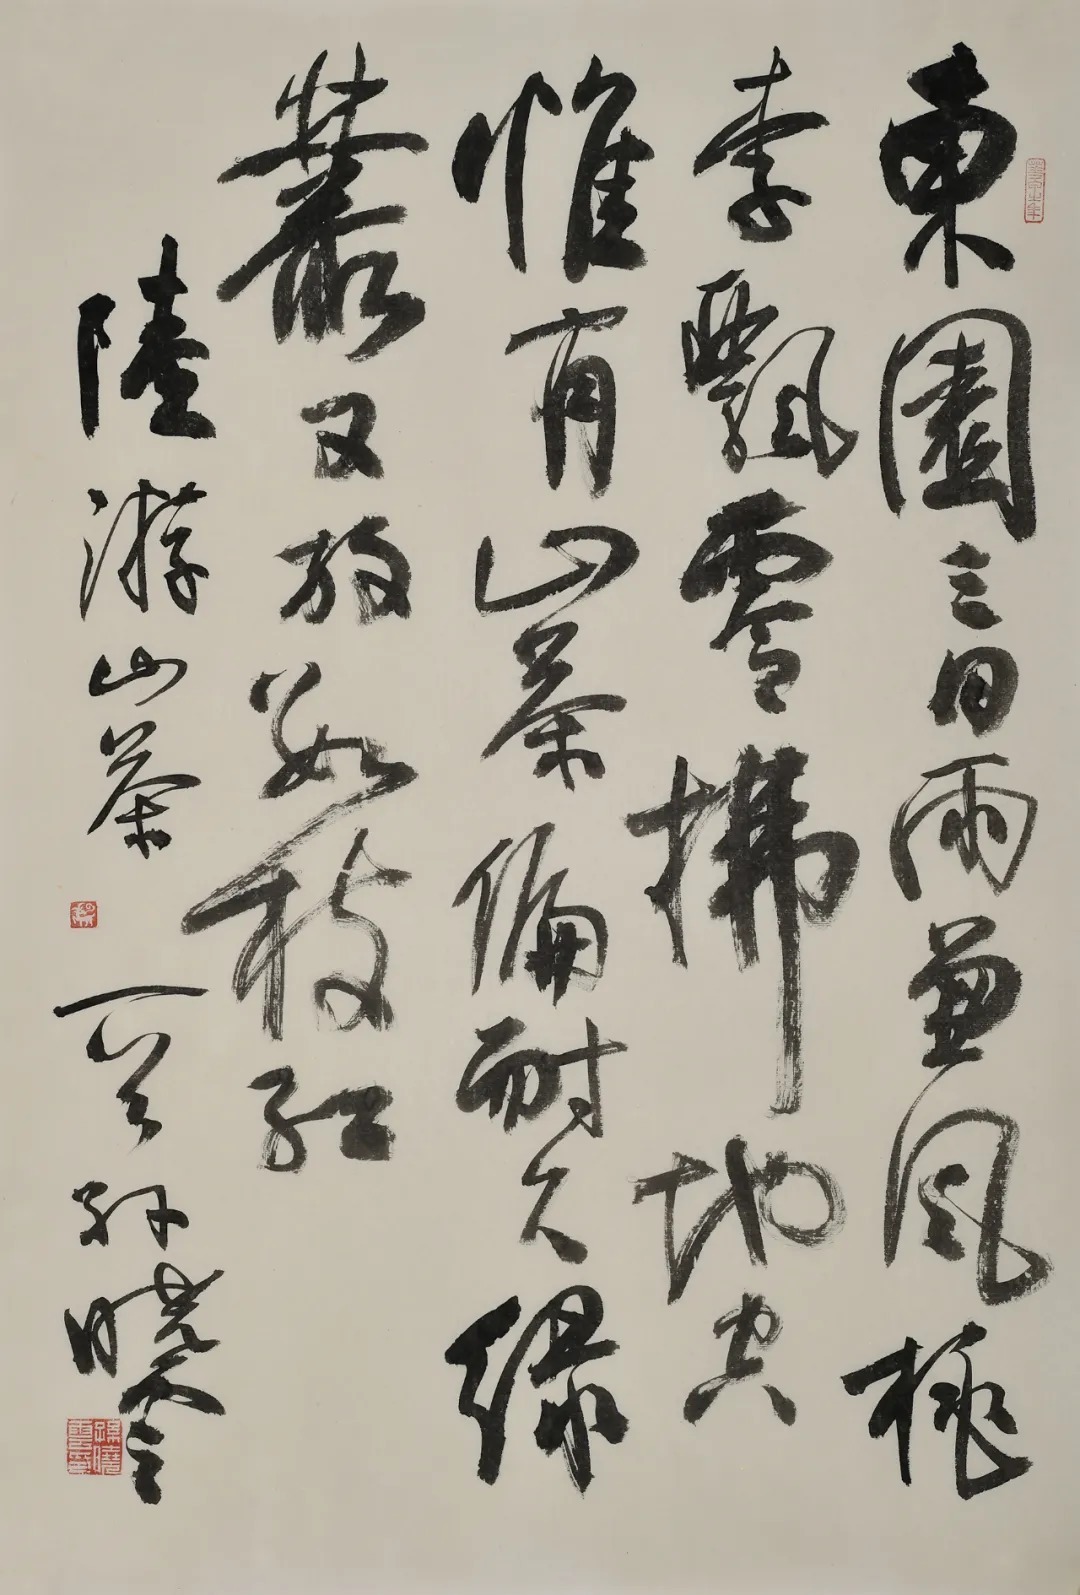 東園三日雨兼風桃
李飄零掃地空
惟有山茶偏耐久綠
叢又放數枝紅
陸游山茶 孫曉雲